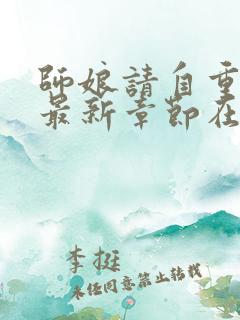 師娘請自重
最新章節在
李挺
未經同意禁止轉載